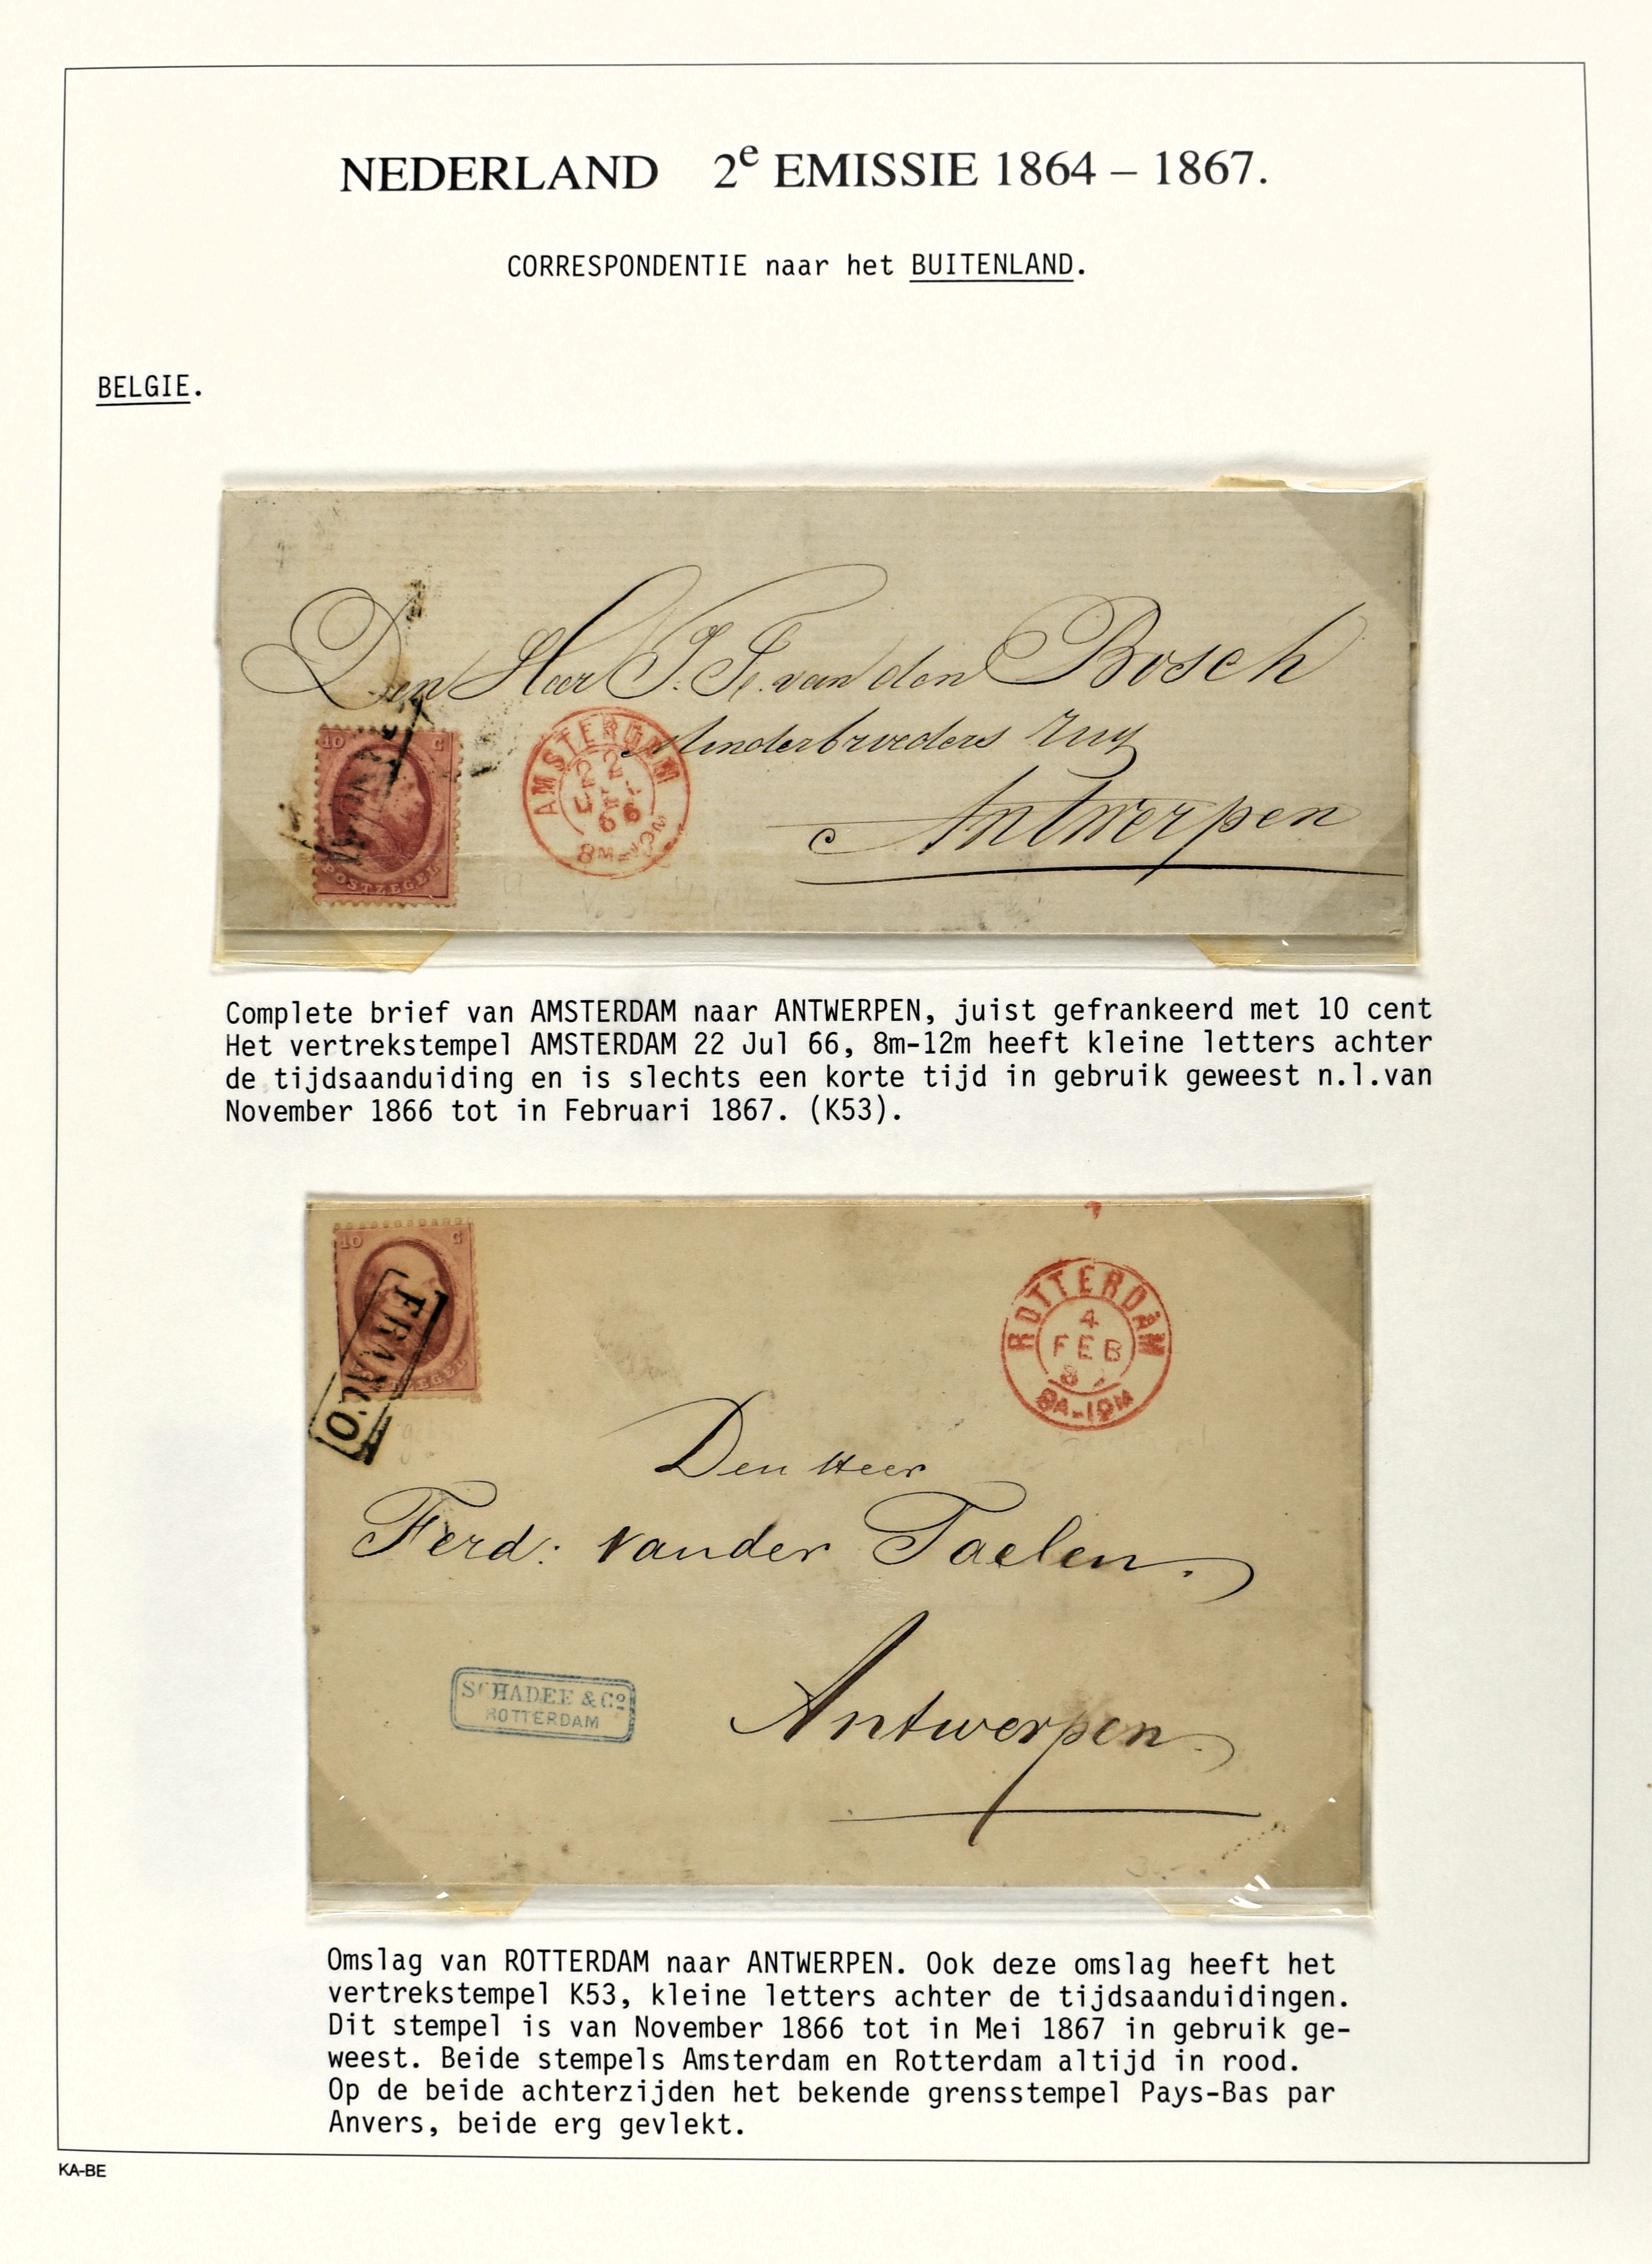 NEDERLAND 2e EMISSIE 1864 – 1867.
CORRESPONDENTIE naar het BUITENLAND.
BELGIE.
Den Heer J. F. van den Bosch
Minderbroeders Ruy
Antwerpen
10 C
POSTZEGEL
AMSTERDAM
22
66
8M-12M
Complete brief van AMSTERDAM naar ANTWERPEN, juist gefrankeerd met 10 cent
Het vertrekstempel AMSTERDAM 22 Jul 66, 8m-12m heeft kleine letters achter
de tijdsaanduiding en is slechts een korte tijd in gebruik geweest n.l.van
November 1866 tot in Februari 1867. (K53).
10 C
POSTZEGEL
FRANCO
ROTTERDAM
4
FEB
Den Heer
Ferd: vander Taelen.
Antwerpen
SCHADEE & Co
ROTTERDAM
Omslag van ROTTERDAM naar ANTWERPEN. Ook deze omslag heeft het
vertrekstempel K53, kleine letters achter de tijdsaanduidingen.
Dit stempel is van November 1866 tot in Mei 1867 in gebruik ge-
weest. Beide stempels Amsterdam en Rotterdam altijd in rood.
Op de beide achterzijden het bekende grensstempel Pays-Bas par
Anvers, beide erg gevlekt.
KA-BE